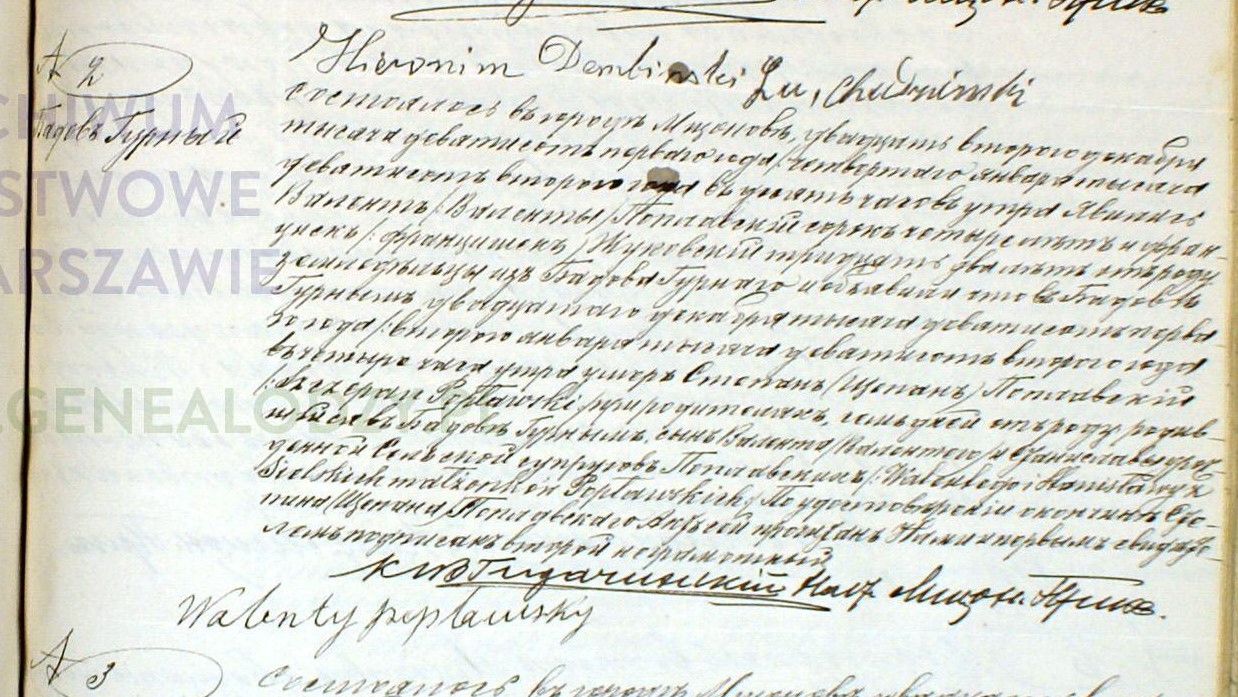 Мщон. Прих.
№ 2
Бадовъ Гурный
Hieronim Dembinski
Состоялось въ городѣ Мщоновѣ, двадцать второго декабря
тысяча девятисотъ перваго года /: четвертаго января тысяча
девятисотъ второго года въ десять часовъ утра. Явились
Валентъ /: Валенты / Поплавскій сорокъ четыре лѣтъ и Фран-
цискъ /: Францишекъ / Жуковскій тридцать два лѣтъ отъ роду
земледѣльцы изъ Бадова Гурнаго и объявили что въ Бадовѣ
Гурнымъ двадцатаго декабря тысяча девятисотъ перва-
го года /: второго января тысяча девятисотъ второго года
въ четыре часа утра умеръ Степанъ / Щепанъ / Поплавскій
/: Szczepan Popławski / при родителяхъ, семь дней отъ роду, родив-
шійся въ Бадовѣ Гурнымъ, сынъ Валента / Валентого / и Станиславы урож-
денной Сельской супруговъ Поплавскихъ /: Walentego i Stanisławy z
Sielskich małżonków Popławskich / По удостовѣреніи о кончинѣ Сте-
пана / Щепана / Поплавскаго Актъ сей прочитанъ Нами и первымъ свидѣте-
лемъ подписанъ второй неграмотный
Мщон. Прих.
Walenty poplawsky
№ 3
Состоялось въ городѣ Мщоновѣ
CHIWUM
STWOWE
ARSZAWIE
GENEALODZY.PL